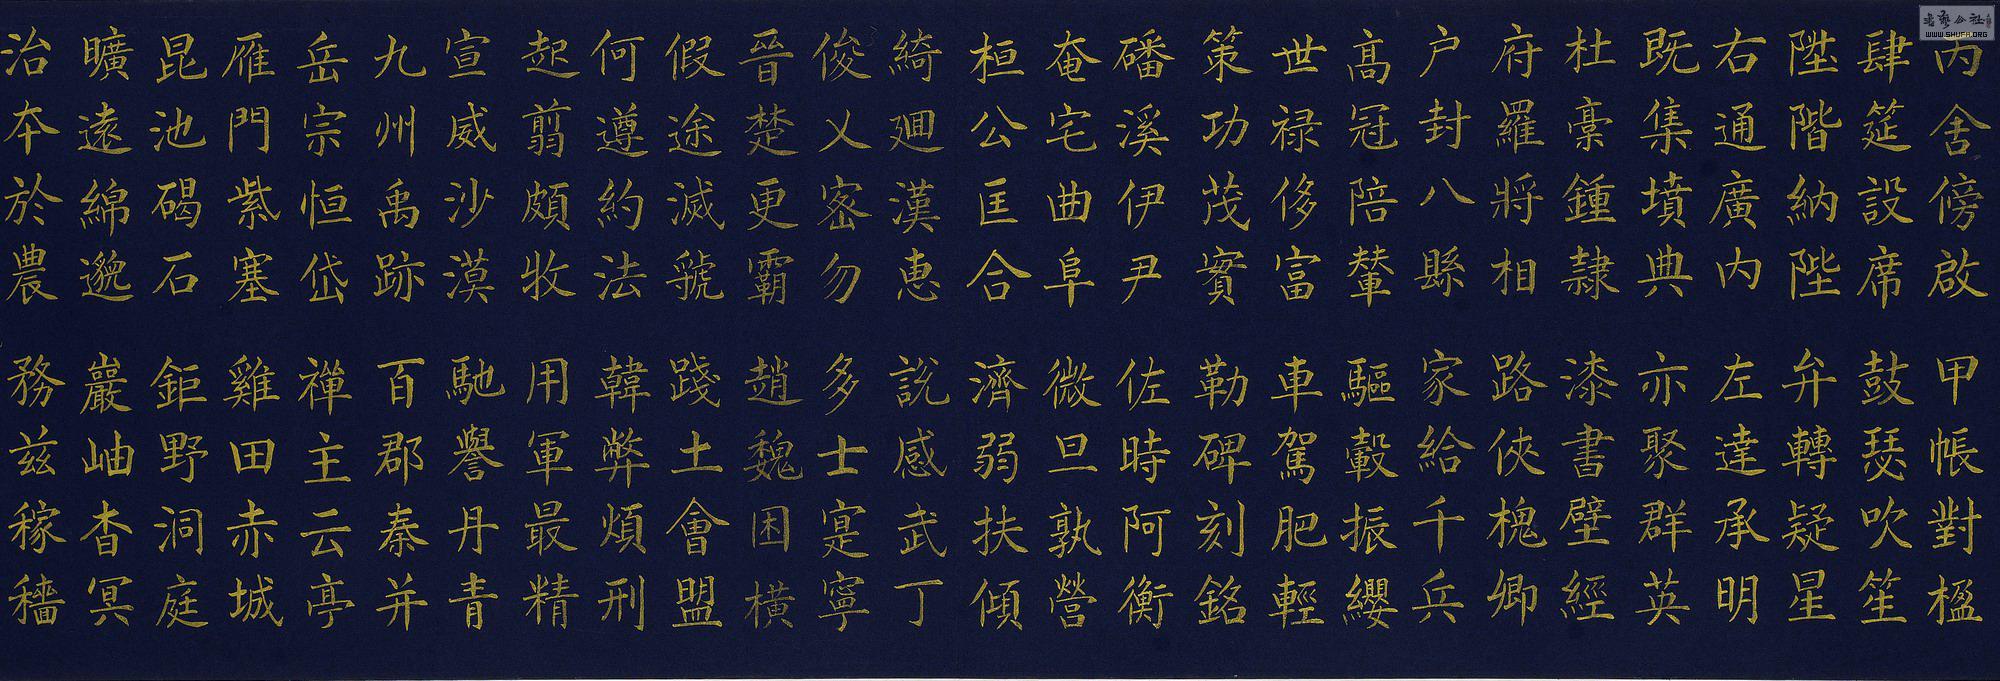 丙舍傍啟 甲帳對楹
肆筵設席 鼓瑟吹笙
陞階納陛 弁轉疑星
右通廣內 左達承明
既集墳典 亦聚群英
杜稾鍾隷 漆書壁經
府羅將相 路俠槐卿
户封八縣 家給千兵
高冠陪輦 驅轂振纓
世禄侈富 車駕肥輕
策功茂實 勒碑刻銘
磻溪伊尹 佐時阿衡
奄宅曲阜 微旦孰營
桓公匡合 濟弱扶傾
綺迴漢恵 説感武丁
俊乂密勿 多士寔寧
晉楚更霸 趙魏困横
假途滅虢 踐土會盟
何遵約法 韓弊煩刑
起翦頗牧 用軍最精
宣威沙漠 馳譽丹青
九州禹跡 百郡秦并
岳宗恒岱 禪主云亭
雁門紫塞 雞田赤城
昆池碣石 鉅野洞庭
曠遠綿邈 巖岫杳冥
治本於農 務茲稼穡
書藝公社
WWW.SHUFA.ORG